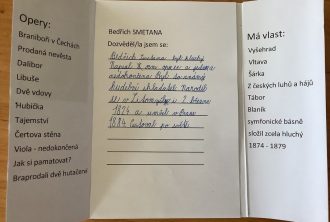 Opery:
Braniboři v Čechách
Prodaná nevěsta
Dalibor
Libuše
Dvě vdovy
Hubička
Tajemství
Čertova stěna
Viola - nedokončená
Jak si pamatovat?
Braprodali dvě hutačena
Bedřich SMETANA
Dozvěděl/la jsem se:
Bedřich Smetana byl hluchý
Napsal 8 oper a jednu
nedokončenou Byl to známý
hudební skladatel Narodil
se v Litomyšli 2. března
1824 a umřel v Praze
1884 Cestoval po světě
Má vlast:
Vyšehrad
Vltava
Šárka
Z českých luhů a hájů
Tábor
Blaník
symfonické básně
složil zcela hluchý
1874 - 1879